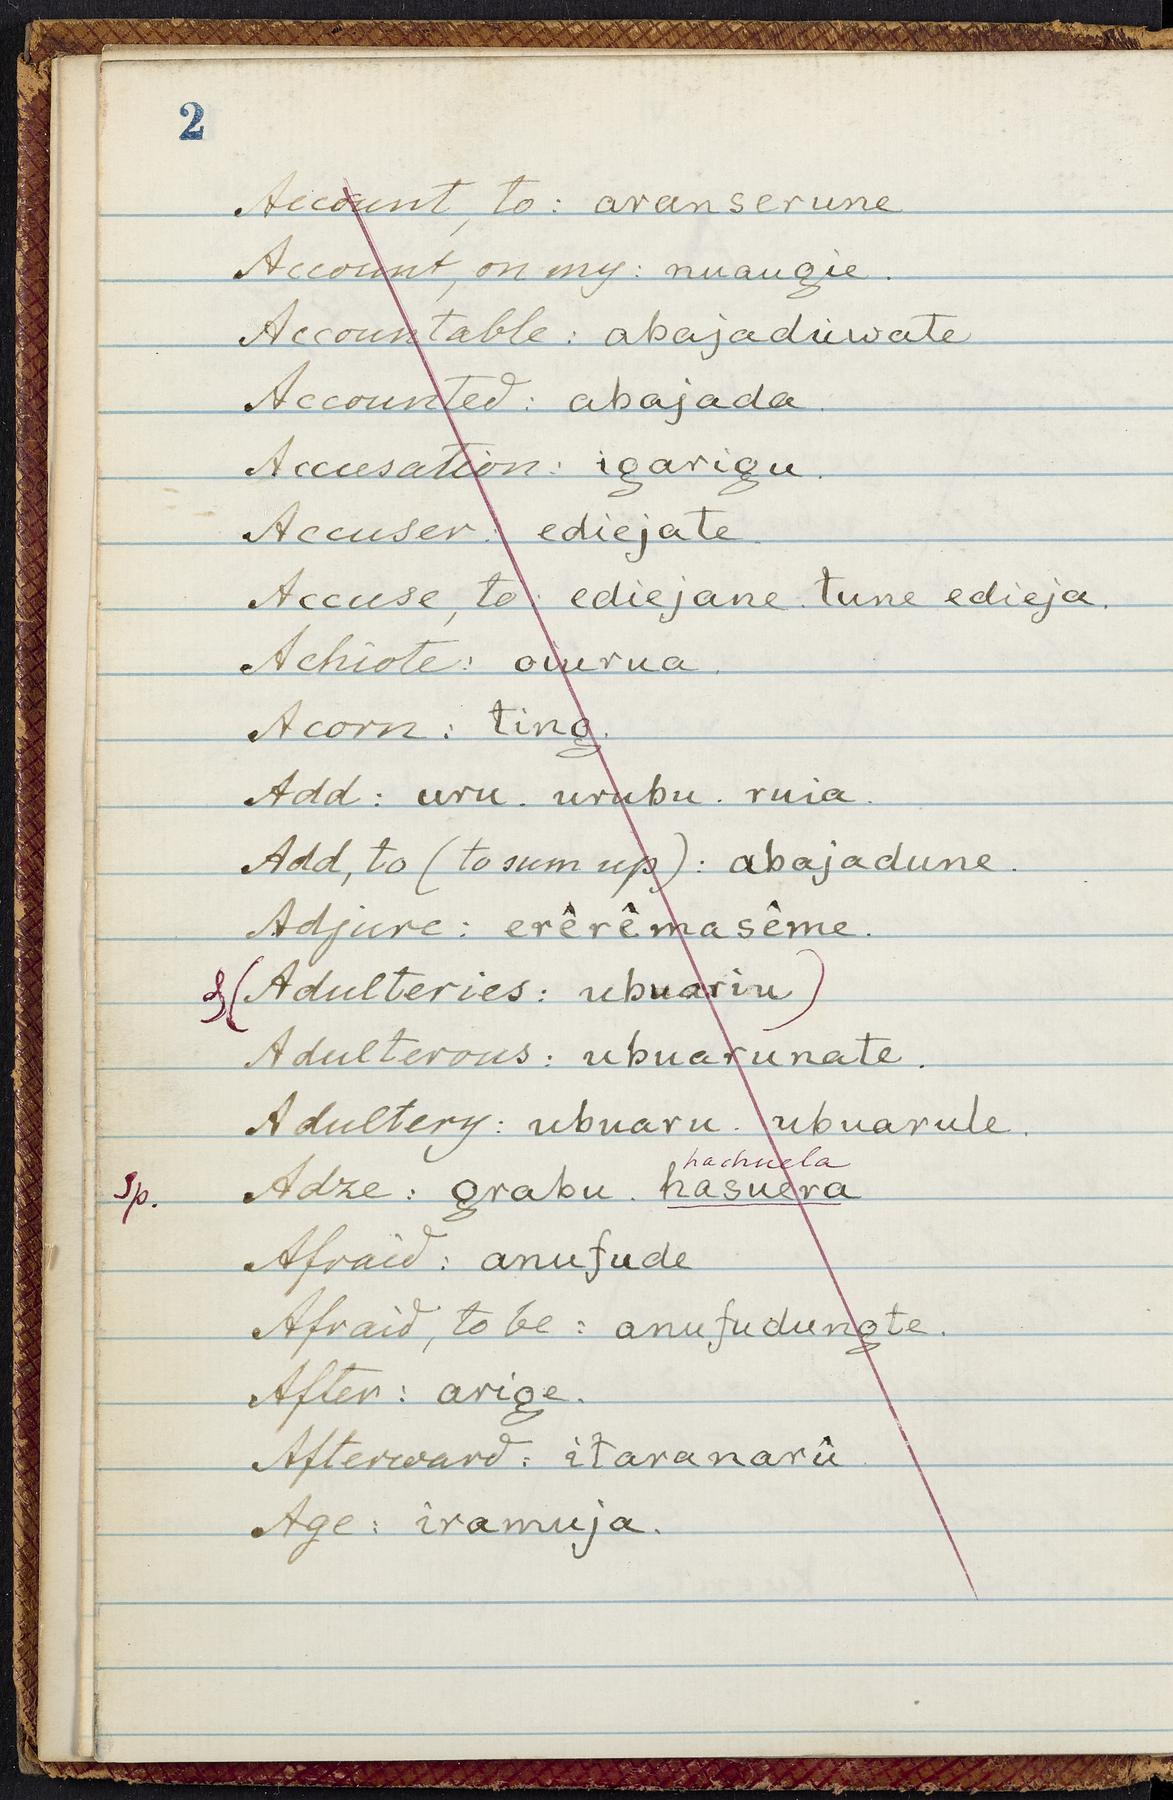 2
Account, to: aranserune
Account, on my: nuaugie.
Accountable: abajaduwate
Accounted: abajada.
Accusation: igarigu.
Accuser: ediejate.
Accuse, to: ediejane. tune edieja.
Achiote: oiurua.
Acorn: ting.
Add: uru. urubu. ruia.
Add, to (to sum up): abajadune.
Adjure: erêrêmasême.
(Adulteries: ubuariu)
Adulterous: ubuarunate.
Adultery: ubuaru. ubuarule.
hachuela
Sp. Adze: grabu. hasuera
Afraid: anufude
Afraid, to be: anufudungte.
After: arige.
Afterward: itaranarû
Age: iramuja.